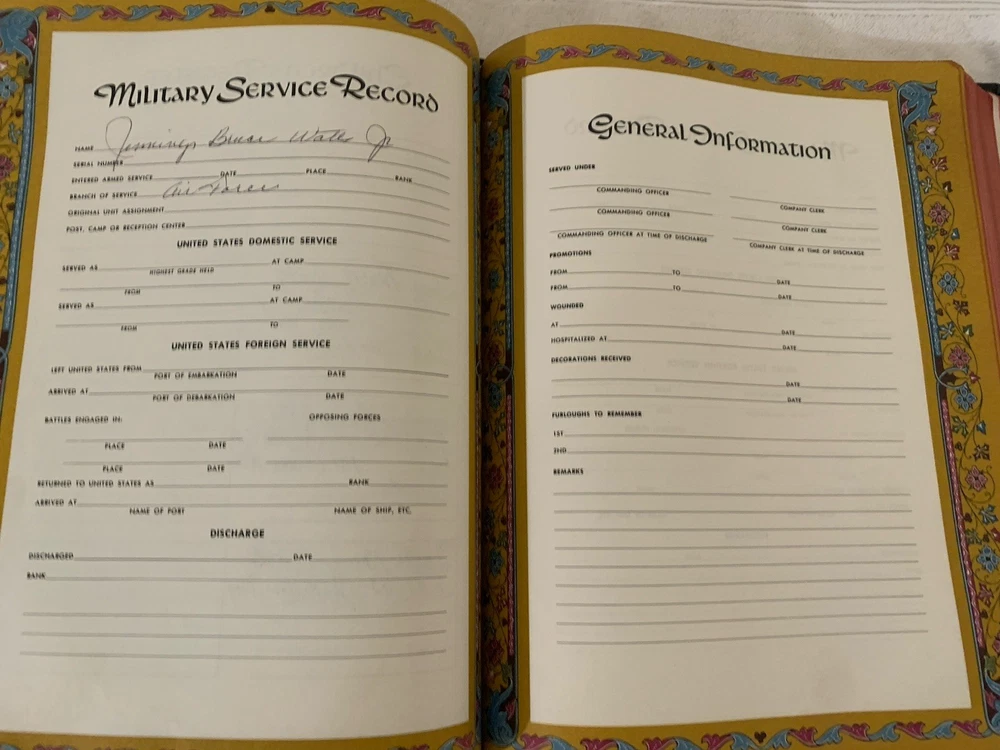 Military Service Record
NAME Jennings Bruce Watts Jr
SERIAL NUMBER
ENTERED ARMED SERVICE DATE PLACE RANK
BRANCH OF SERVICE Air Force
ORIGINAL UNIT ASSIGNMENT
POST, CAMP OR RECEPTION CENTER
UNITED STATES DOMESTIC SERVICE
SERVED AS AT CAMP
HIGHEST GRADE HELD
FROM TO
SERVED AS AT CAMP
FROM TO
UNITED STATES FOREIGN SERVICE
LEFT UNITED STATES FROM
PORT OF EMBARKATION DATE
ARRIVED AT
PORT OF DEBARKATION DATE
BATTLES ENGAGED IN: OPPOSING FORCES
PLACE DATE
PLACE DATE
RETURNED TO UNITED STATES AS RANK
ARRIVED AT
NAME OF PORT NAME OF SHIP, ETC.
DISCHARGE
DISCHARGED DATE
RANK
General Information
SERVED UNDER
COMMANDING OFFICER COMPANY CLERK
COMMANDING OFFICER COMPANY CLERK
COMMANDING OFFICER AT TIME OF DISCHARGE COMPANY CLERK AT TIME OF DISCHARGE
PROMOTIONS
FROM TO DATE
FROM TO DATE
WOUNDED
AT DATE
HOSPITALIZED AT DATE
DECORATIONS RECEIVED
DATE
DATE
FURLOUGHS TO REMEMBER
1ST
2ND
REMARKS